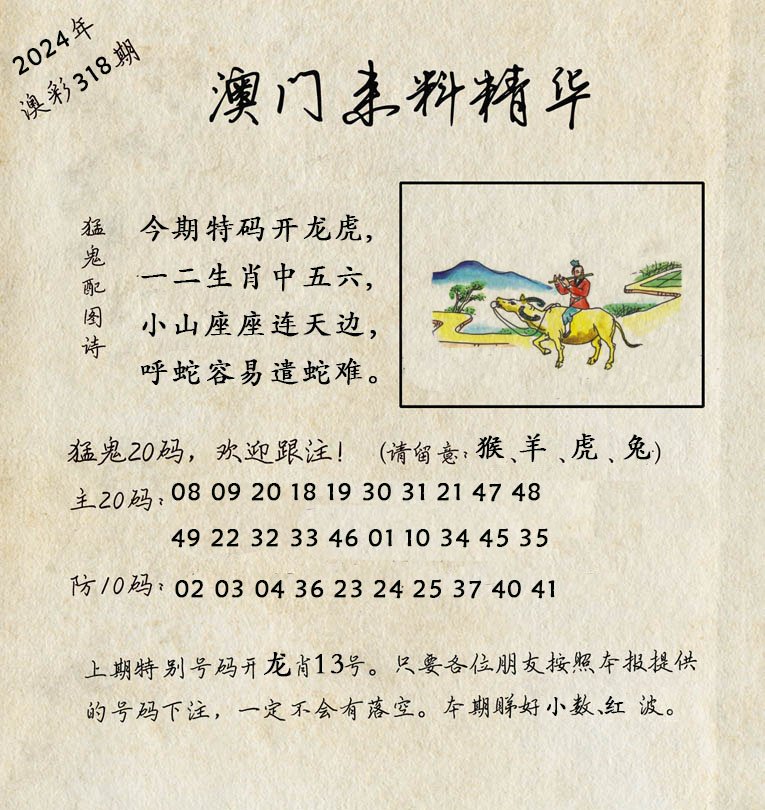 2024年
澳彩318期
澳门来料精华
猛鬼配图诗
今期特码开龙虎，
一二生肖中五六，
小山座座连天边，
呼蛇容易遣蛇难。
猛鬼20码，欢迎跟注！（请留意：猴、羊、虎、兔）
主20码：08 09 20 18 19 30 31 21 47 48
49 22 32 33 46 01 10 34 45 35
防10码：02 03 04 36 23 24 25 37 40 41
上期特别号码开龙肖13号。只要各位朋友按照本报提供
的号码下注，一定不会有落空。本期睇好小数、红 波。